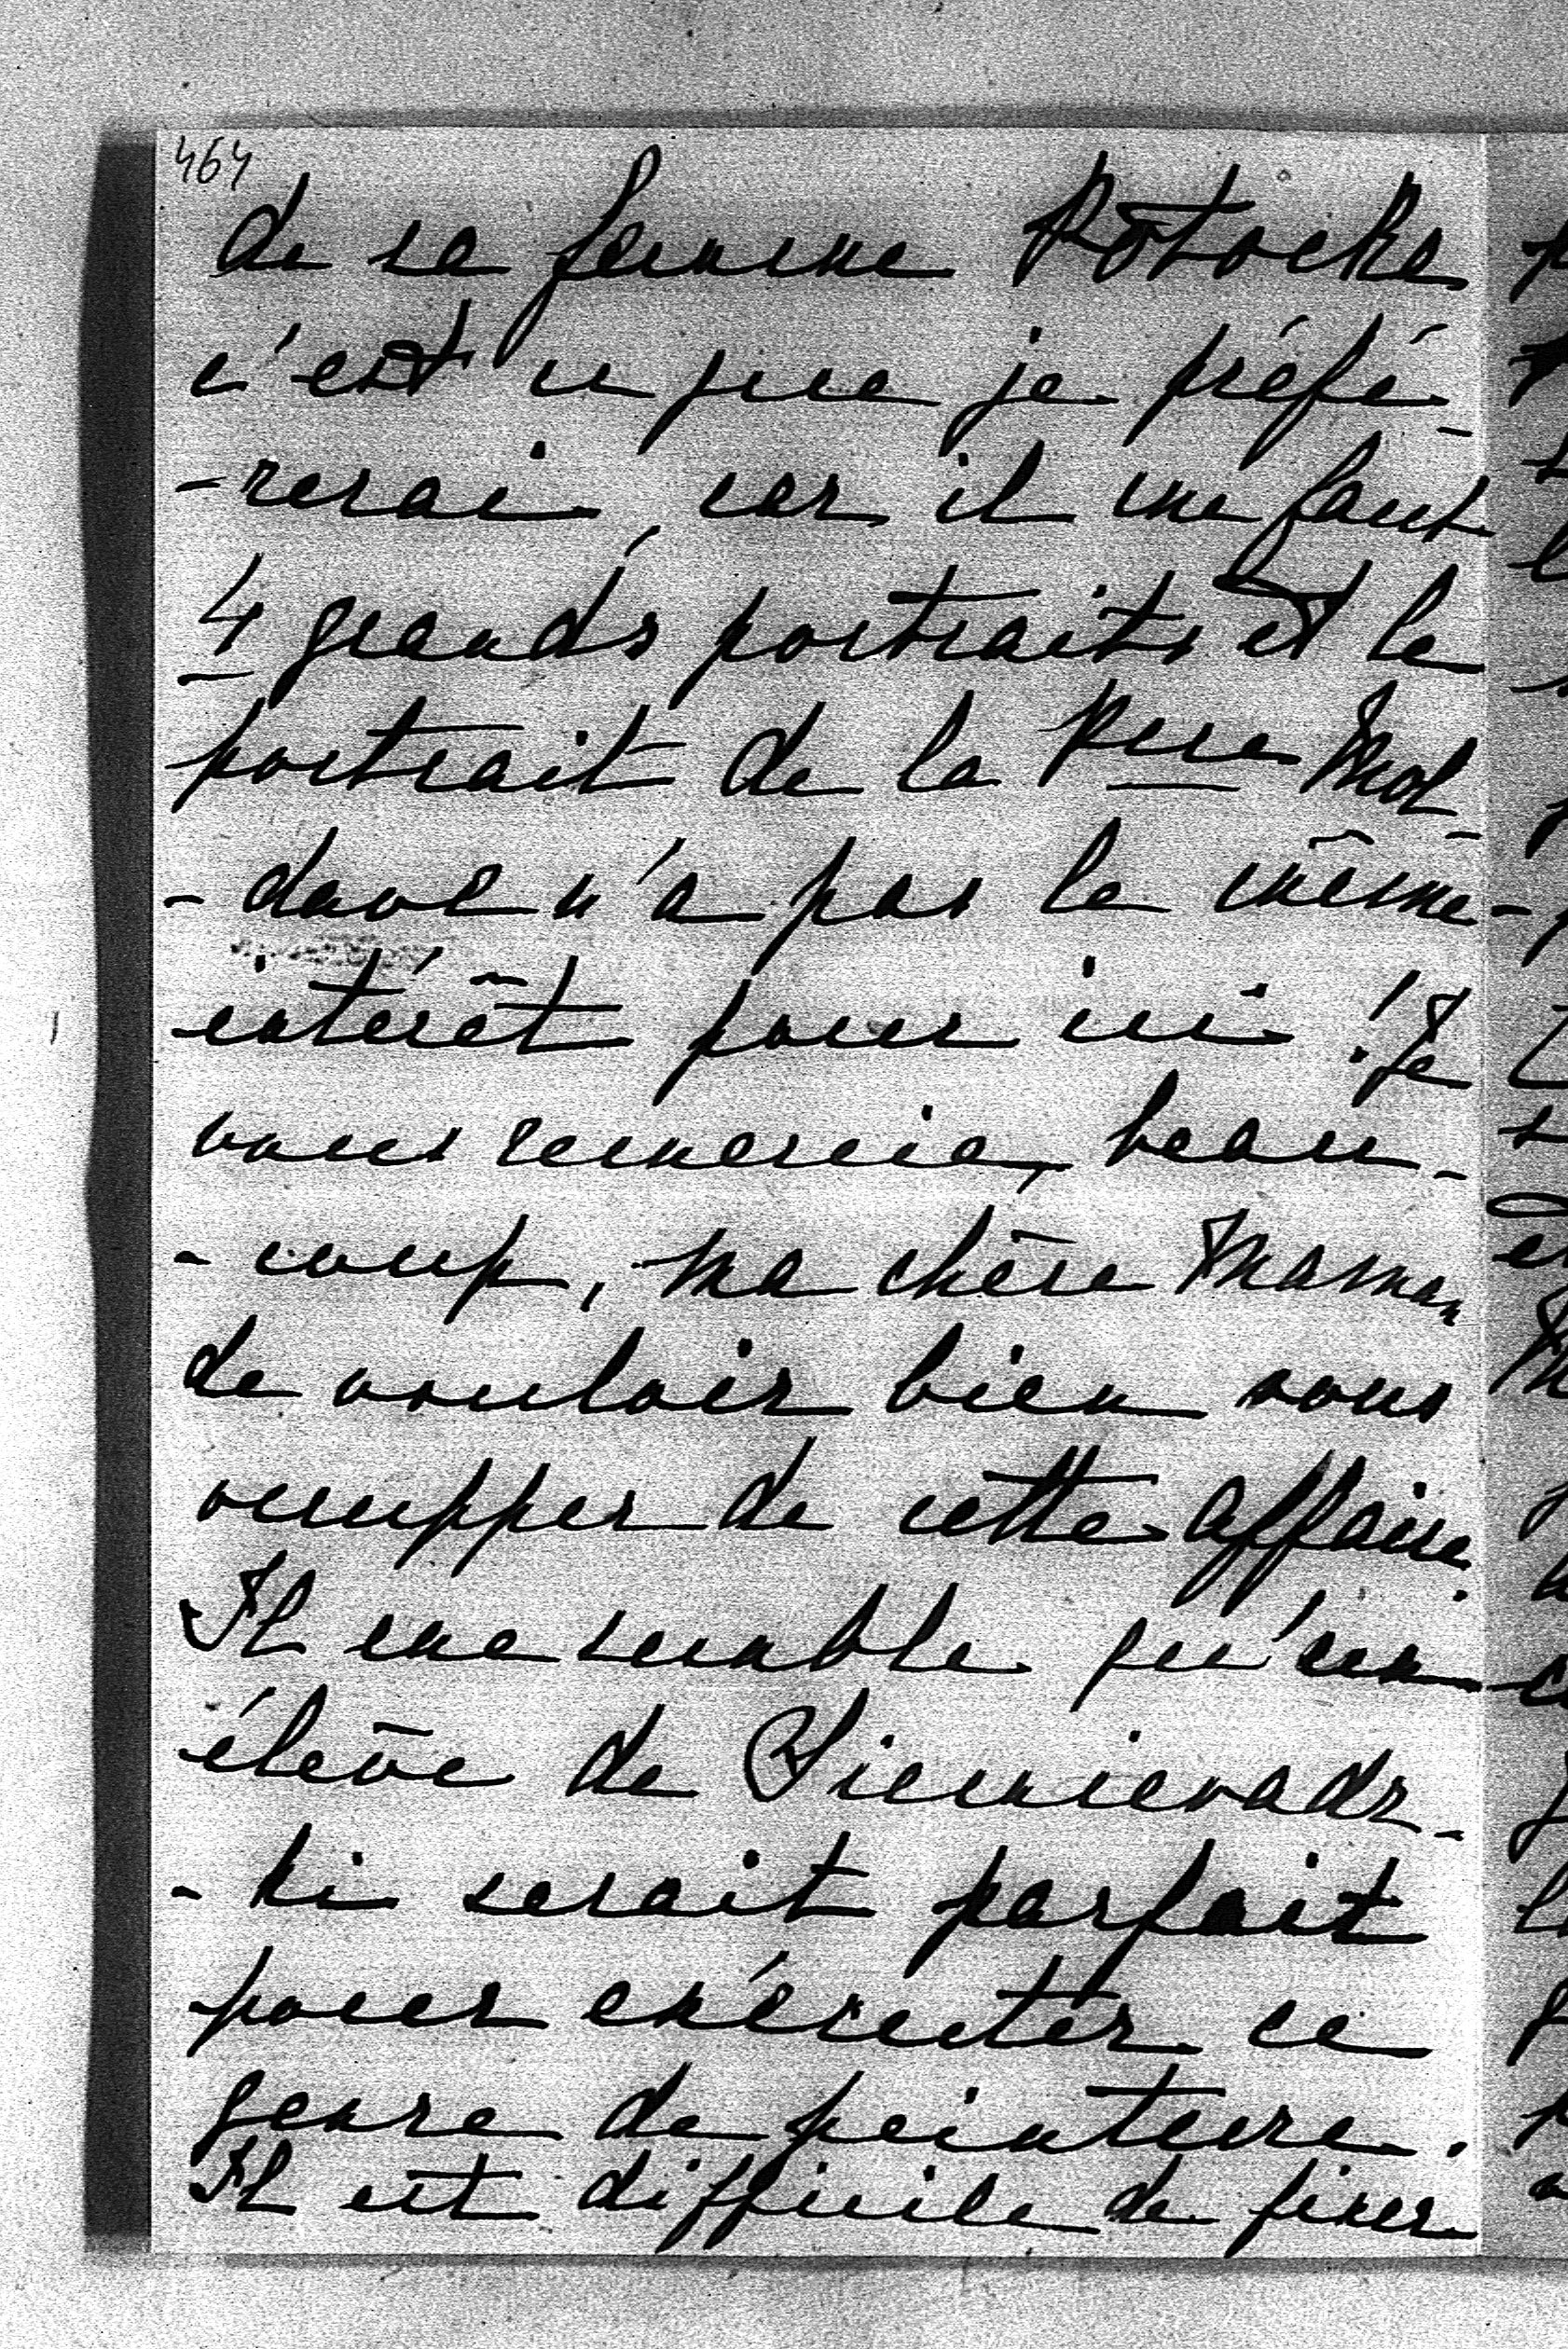 464
de sa femme Potocka
c'est ce que je préfé-
-rerai, car il me faut
4 grands portraits et le
portrait de la Pcre Mol-
-dave n'a pas le même
intérêt pour ici! Je
vous remercie, beau-
-coup, ma chère Maman
de vouloir bien vous
occupper de cette affaire.
Il me semble qu'un
élève de Siemievadz-
-ki serait parfait
pour exécuter ce
genre de peinture.
Il est difficile de fixer